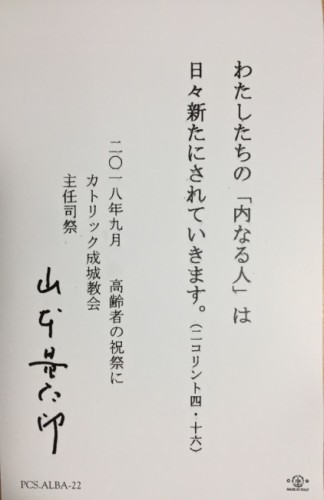 わたしたちの「内なる人」は
日々新たにされていきます。(二コリント四・十六)
二〇一八年九月　高齢者の祝祭に
カトリック成城教会
主任司祭
山本量太郎
PCS.ALBA-22
MADE IN ITALY